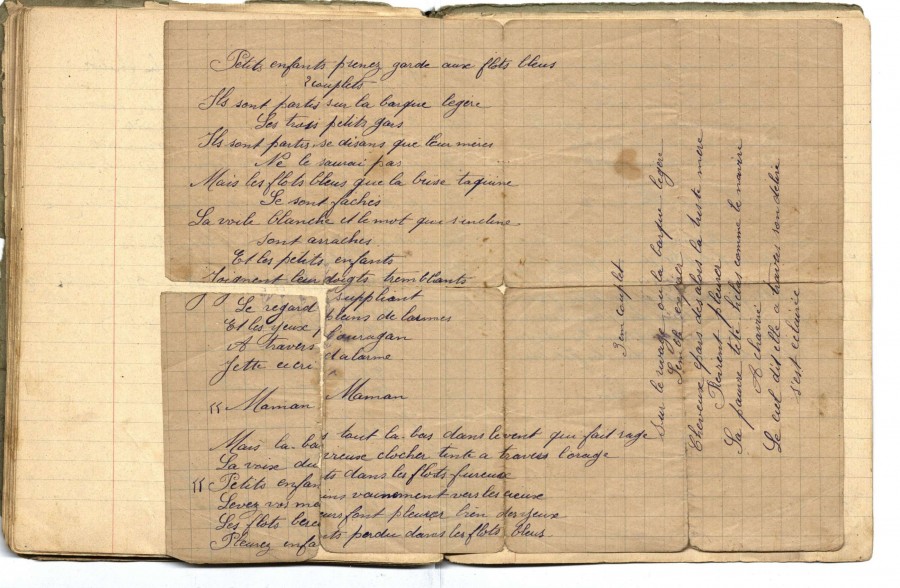 Petits enfants prenez garde aux flots bleus
2 couplets
Ils sont partis sur la barque legère
Les trois petits gars
Ils sont partis se disans que leur mères
Ne le saurai pas
Mais les flots bleus que la brise taquine
Se sont fachés
La voile blanche et le mot qui s'incline
sont arrachés
Et les petits enfants
Joignent leur doigts tremblants
Le regard suppliant
Et les yeux pleins de larmes
A travers l'ouragan
Jette ce cri d'alarme
" Maman Maman
Mais la bas tout la-bas dans le vent qui fait rage
La voix du clocher tinte a travers l'orage
" Petits enfants dans les flots fureux
Levez vos mains vainement vers les cieux
Les flots berceurs font pleurer bien des yeux
Pleurez enfants perdu dans les flots bleus
3em couplet
Sur le rivage ou la barque legère
Semble
Cheveux epars depuis la triste mère
Revient pleurer
La pauvre tete helas comme le navire
A chaviré
Le ciel dit elle a travers son delire
s'est eclairée